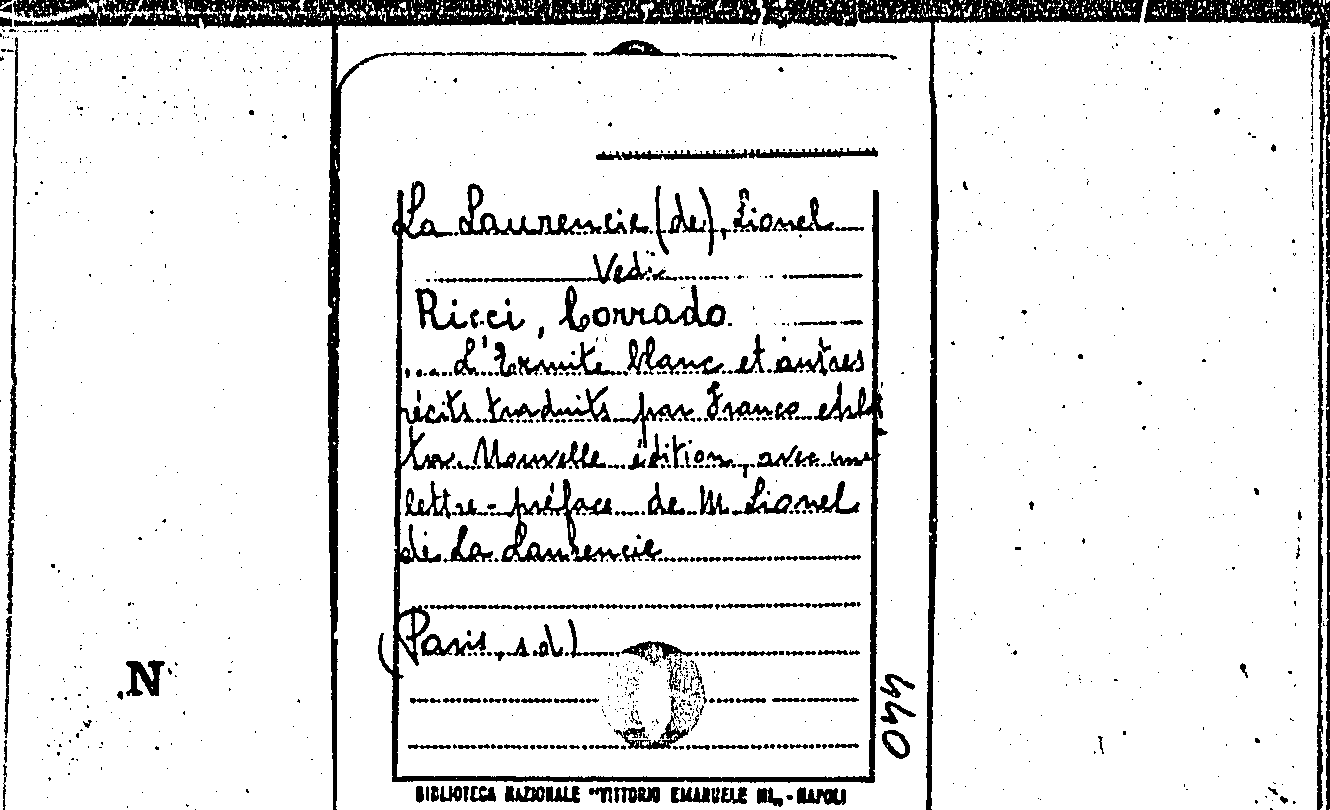 La Laurencie (de), Lionel
Vedi
Ricci, Corrado
... L'Ermite blanc et autres
récits traduits par Franco
Nouvelle édition, avec une
lettre-préface de M. Lionel
de La Laurencie
(Paris, s.d.)
N
440
BIBLIOTECA NAZIONALE "VITTORIO EMANUELE III" - NAPOLI